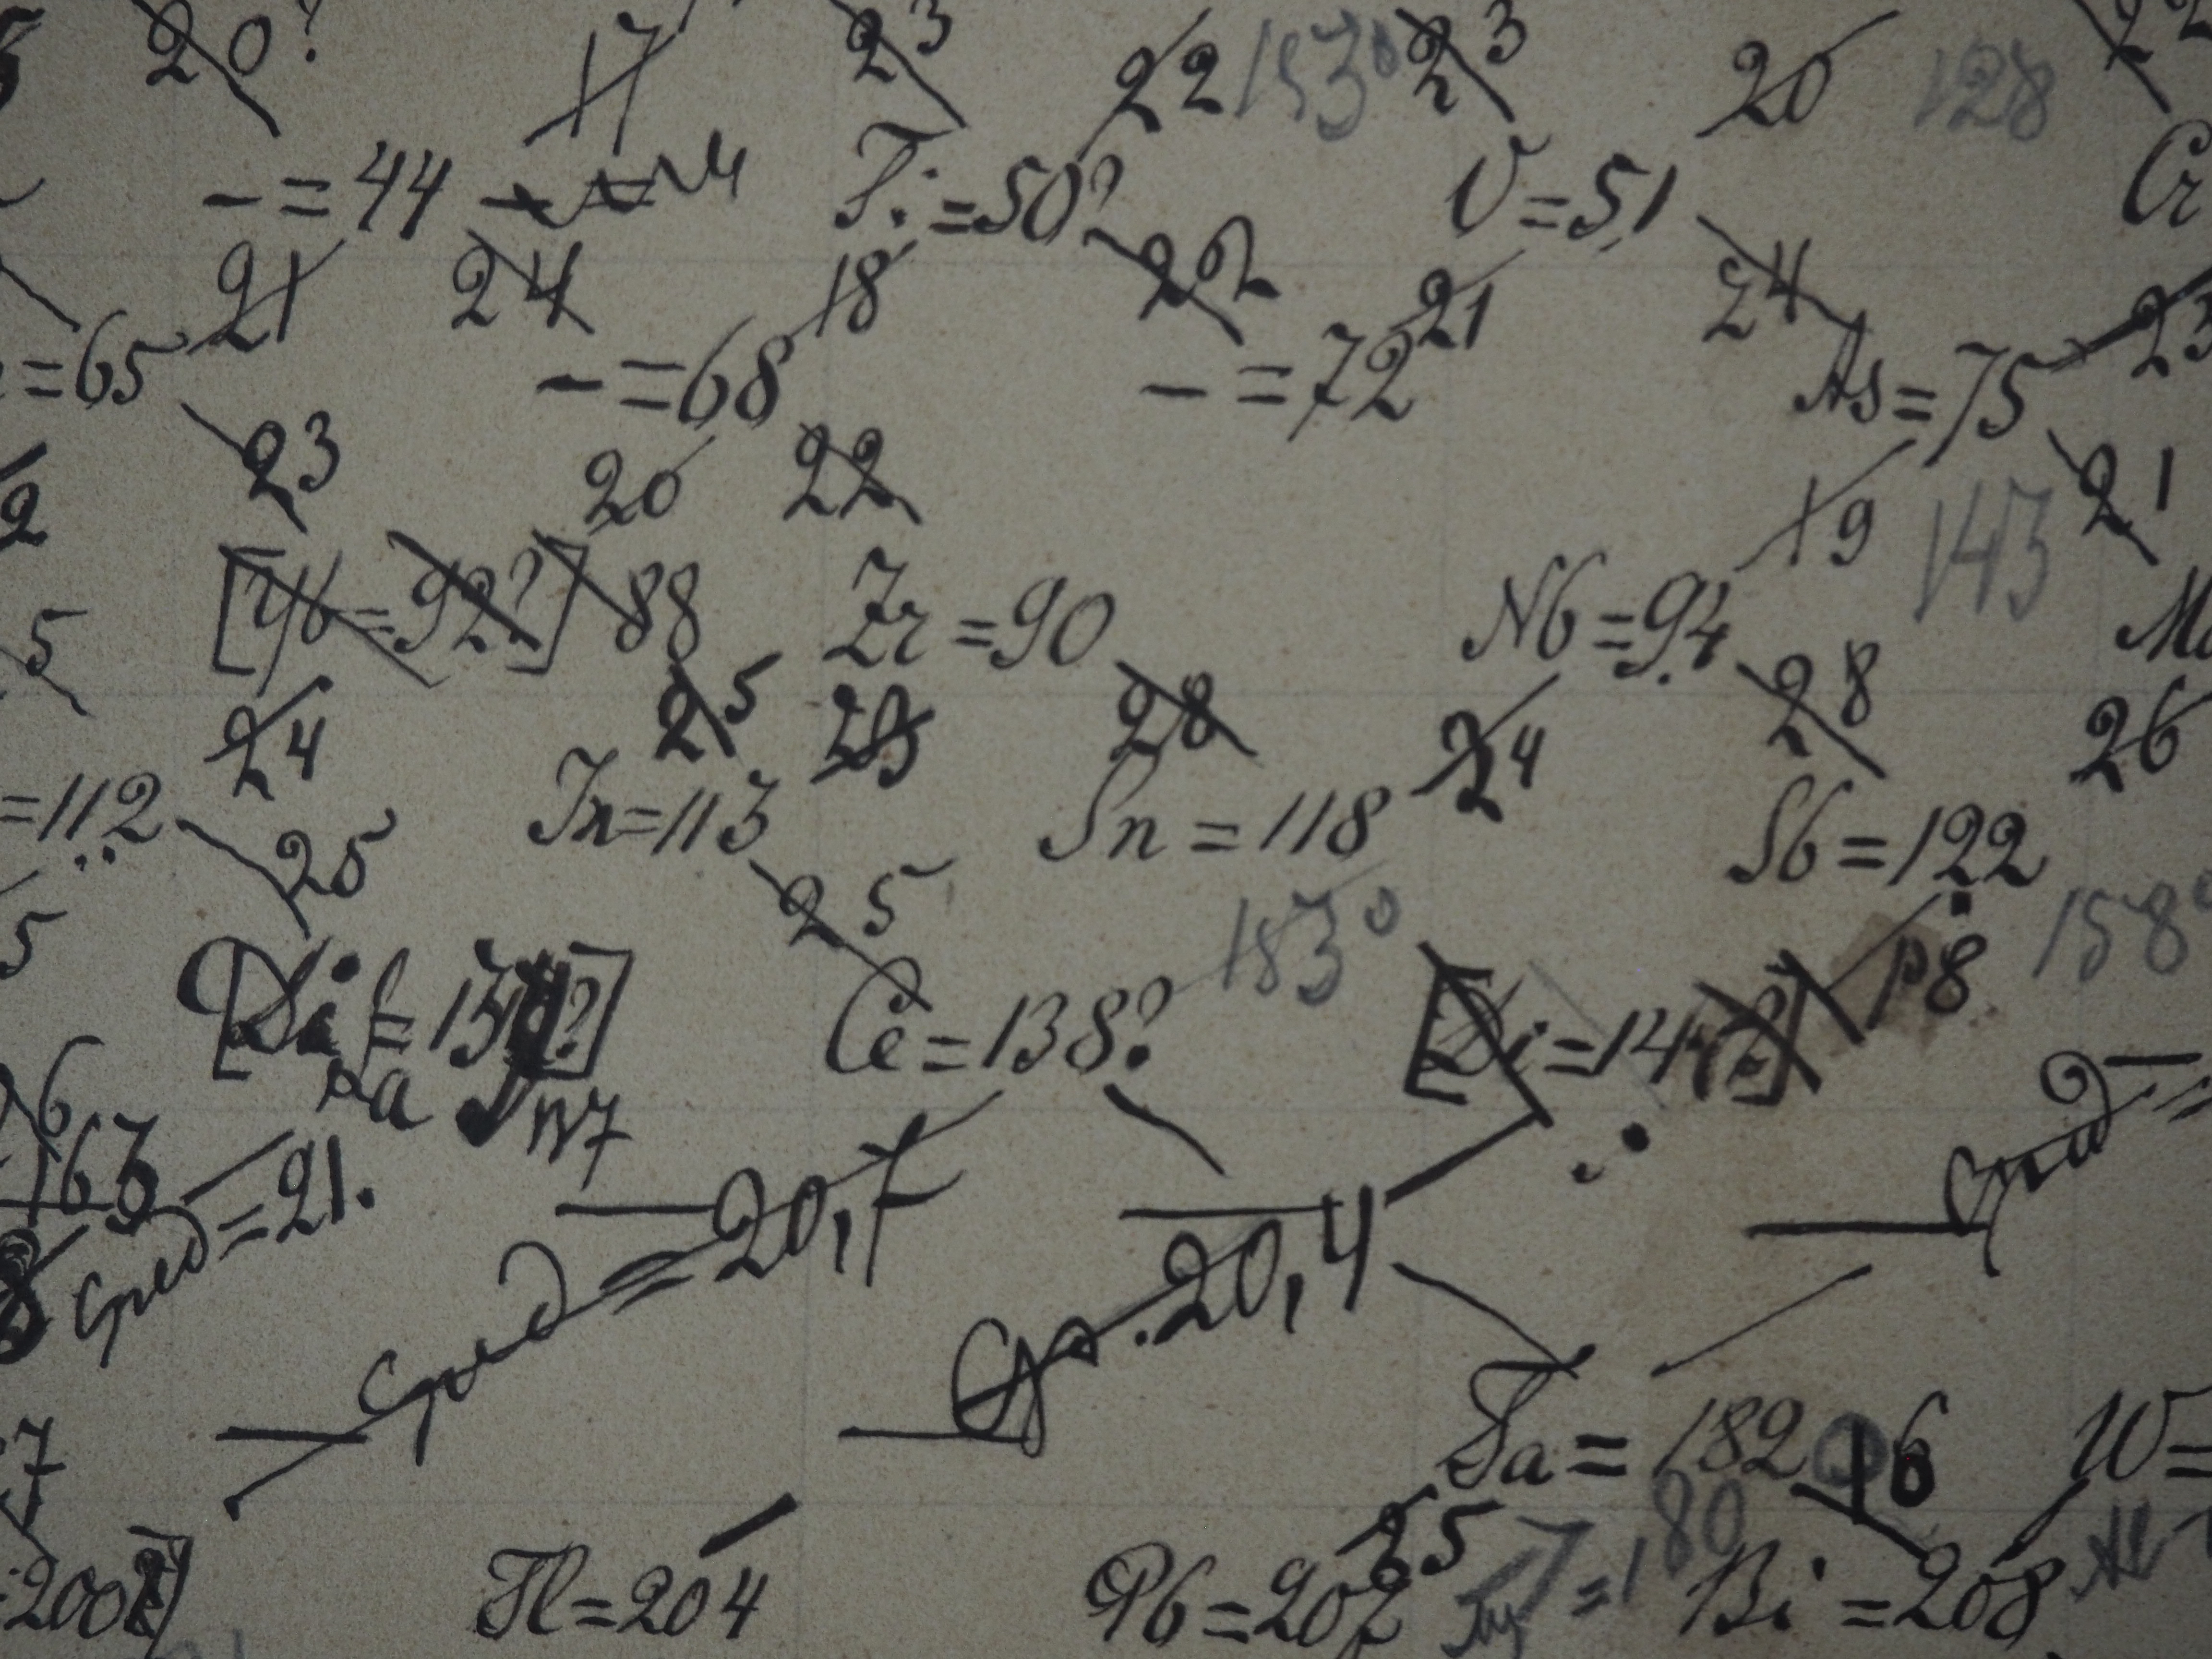 20? 17 23 22 153° 23 20 128 22
- = 44 Ti = 50? V = 51 Cr
21 24 18 22 21 24 23
= 65 - = 68 - = 72 As = 75
23 20 22 19 143 21
[Yb = 92?] 88 Zr = 90 Nb = 94
5 24 25 28 24 28 26
= 112 In = 113 Sn = 118 Sb = 122
25 25 183° 18 158°
[Di = 13 ?] Ce = 138? [Di = 14 ?]
La 137
163 сред = 21. сред = 20,7 Ср. 20,4 Сред =
Ta = 182 16 W =
25 = 180
200 ] Tl = 204 Pb = 207 Bi = 208